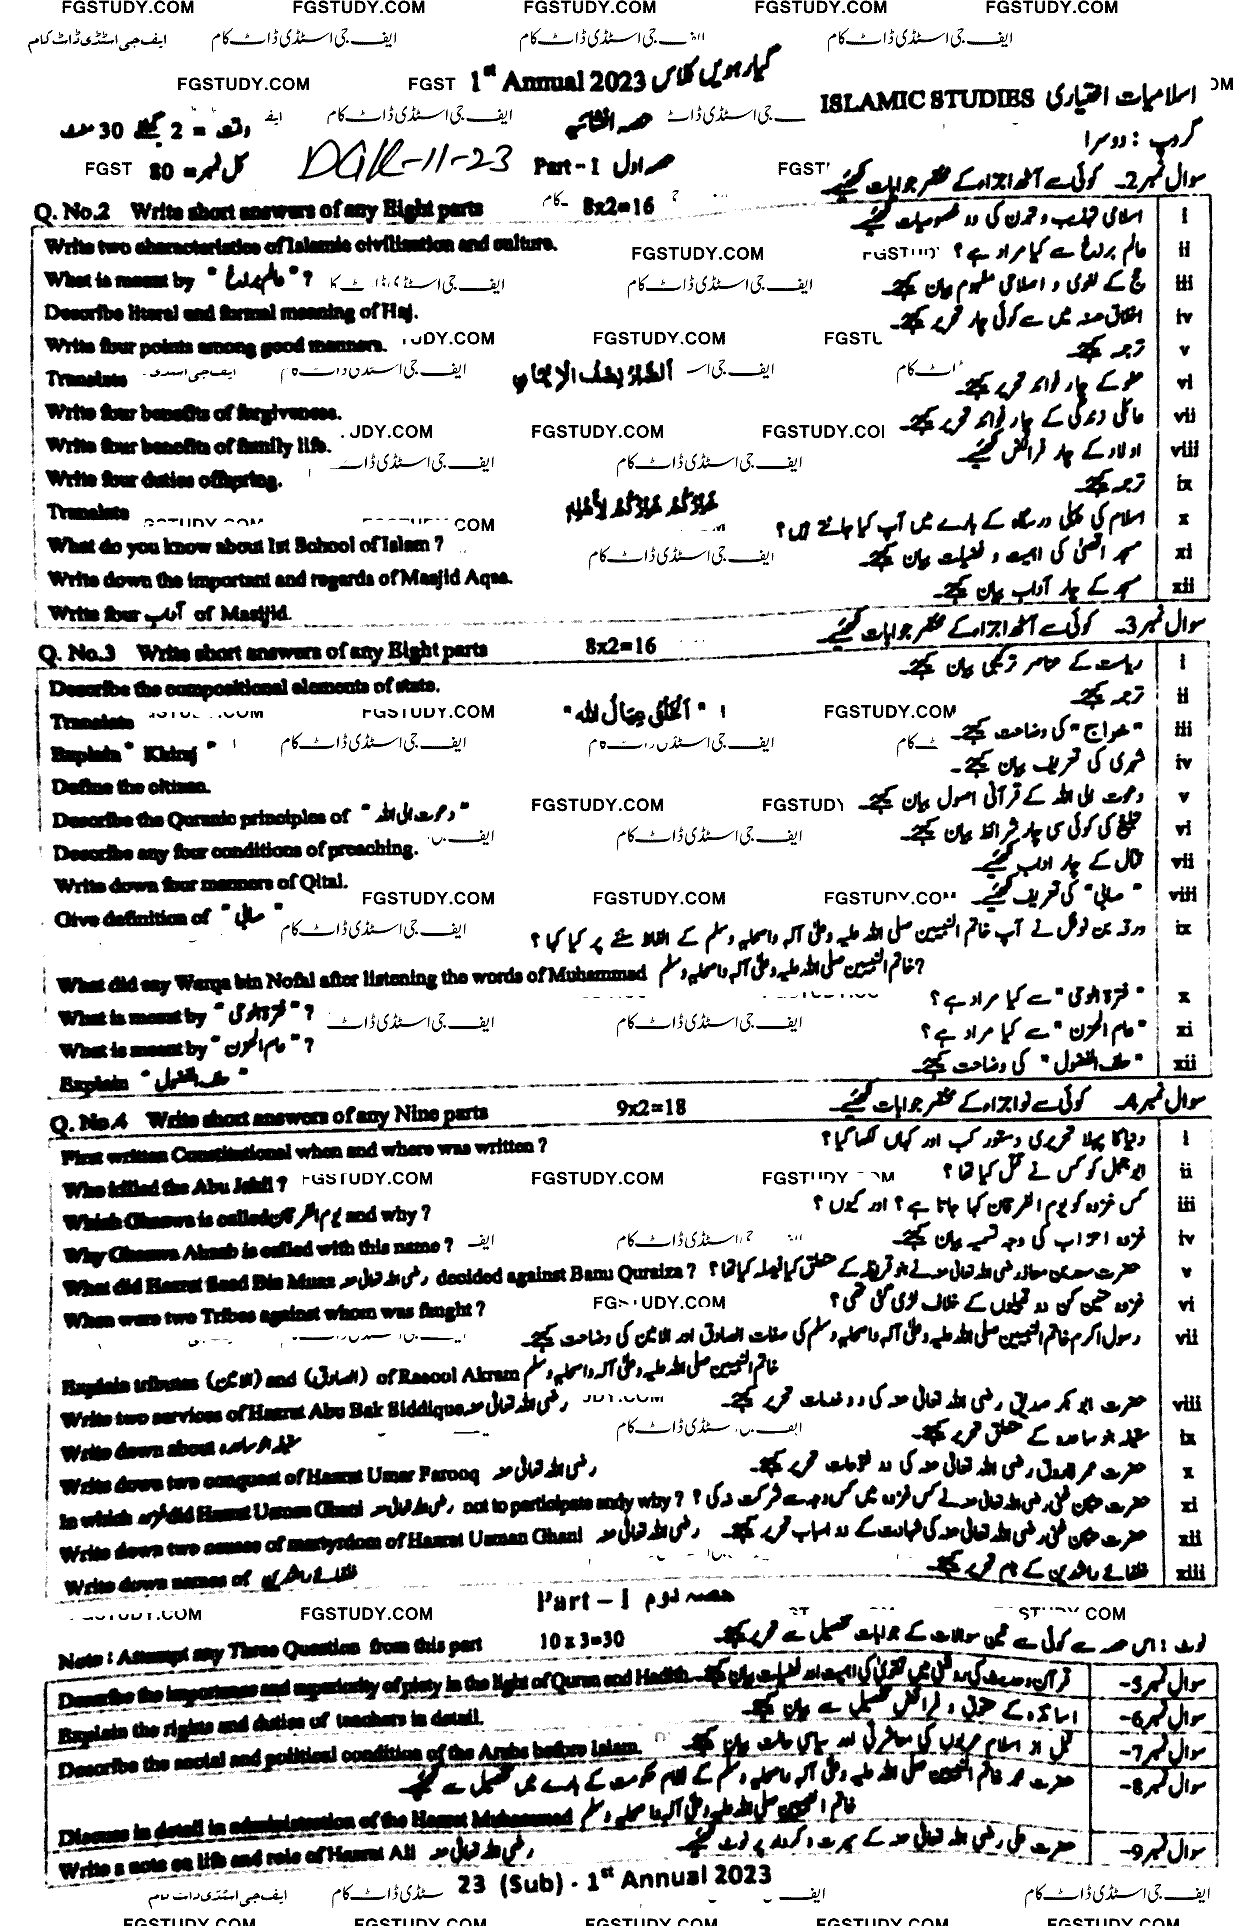 1st Annual 2023 گیارہویں کلاس
اسلامیات اختیاری ISLAMIC STUDIES
گروپ : دوسرا
حصہ انشائیہ
وقت = 2 گھنٹے 30 منٹ
حصہ اول Part - I
DGK-11-23
کل نمبر = 80
سوال نمبر 2۔ کوئی سے آٹھ اجزاء کے مختصر جوابات لکھئیے۔
Q. No.2 Write short answers of any Eight parts 8x2=16
i اسلامی تہذیب و تمدن کی دو خصوصیات لکھئیے۔
Write two characteristics of Islamic civilization and culture.
ii عالم برزخ سے کیا مراد ہے ؟
What is meant by " عالم برزخ " ?
iii حج کے لغوی و اصلاحی مفہوم بیان کیجئے۔
Describe literal and formal meaning of Haj.
iv اخلاق حسنہ میں سے کوئی چار تحریر کیجئے۔
Write four points among good manners.
v ترجمہ کیجئے۔
Translate
vi عفو کے چار فوائد تحریر کیجئے۔
Write four benefits of forgiveness.
vii عائلی زندگی کے چار فوائد تحریر کیجئے۔
Write four benefits of family life.
viii اولاد کے چار فرائض لکھئیے۔
Write four duties offspring.
ix ترجمہ کیجئے۔
Translate خَیْرُکُمْ خَیْرُکُمْ لِاَھْلِہٖ
x اسلام کی پہلی درسگاہ کے بارے میں آپ کیا جانتے ہیں؟
What do you know about 1st School of Islam ?
xi مسجد اقصیٰ کی اہمیت و فضیلت بیان کیجئے۔
Write down the important and regards of Masjid Aqsa.
xii مسجد کے چار آداب بیان کیجئے۔
Write four آداب of Masjid.
سوال نمبر 3۔ کوئی سے آٹھ اجزاء کے مختصر جوابات لکھئیے۔
Q. No.3 Write short answers of any Eight parts 8x2=16
i ریاست کے عناصر ترکیبی بیان کیجئے۔
Describe the compositional elements of state.
ii ترجمہ کیجئے۔
Translate " اَلْخَلْقُ عِیَالُ اللہ "
iii "خراج" کی وضاحت کیجئے۔
Explain " Khiraj "
iv شہری کی تعریف بیان کیجئے۔
Define the citizen.
v دعوت الی اللہ کے قرآنی اصول بیان کیجئے۔
Describe the Quranic principles of " دعوت الی اللہ "
vi تبلیغ کی کوئی سی چار شرائط بیان کیجئے۔
Describe any four conditions of preaching.
vii قتال کے چار اداب لکھئیے۔
Write down four manners of Qital.
viii " صابی " کی تعریف لکھئیے۔
Give definition of " صابی "
ix ورقہ بن نوفل نے آپ خاتم النبیین صلی اللہ علیہ وعلیٰ آلہ واصحابہ وسلم کے الفاظ سننے پر کیا کہا ؟
What did say Warqa bin Nofal after listening the words of Muhammad خاتم النبیین صلی اللہ علیہ وعلیٰ آلہ واصحابہ وسلم?
x " فترۃ الوحی " سے کیا مراد ہے ؟
What is meant by " فترۃ الوحی " ?
xi " عام الحزن " سے کیا مراد ہے ؟
What is meant by " عام الحزن " ?
xii " حلف الفضول " کی وضاحت کیجئے۔
Explain " حلف الفضول "
سوال نمبر 4۔ کوئی سے نو اجزاء کے مختصر جوابات لکھئیے۔
Q. No.4 Write short answers of any Nine parts 9x2=18
i دنیا کا پہلا تحریری دستور کب اور کہاں لکھا گیا؟
First written Constitutional when and where was written ?
ii ابو جہل کو کس نے قتل کیا تھا ؟
Who killed the Abu Jahil ?
iii کس غزوہ کو یوم الفرقان کہا جاتا ہے ؟ اور کیوں ؟
Which Ghazwa is called یوم الفرقان and why ?
iv غزوہ احزاب کی وجہ تسمیہ بیان کیجئے۔
Why Ghazwa Ahzab is called with this name ?
v حضرت سعد بن معاذ رضی اللہ تعالیٰ عنہ نے بنو قریظہ کے متعلق کیا فیصلہ کیا تھا ؟
What did Hazrat Saad Bin Muaz رضی اللہ تعالیٰ عنہ decided against Banu Quraiza ?
vi غزوہ حنین کن دو قبیلوں کے خلاف لڑی گئی تھی ؟
When were two Tribes against whom was faught ?
vii رسول اکرم خاتم النبیین صلی اللہ علیہ وعلیٰ آلہ واصحابہ وسلم کی صفات الصادق اور الامین کی وضاحت کیجئے۔
Explain tributes (الامین) and (الصادق) of Rasool Akram خاتم النبیین صلی اللہ علیہ وعلیٰ آلہ واصحابہ وسلم
viii حضرت ابو بکر صدیق رضی اللہ تعالیٰ عنہ کی دو خدمات تحریر کیجئے۔
Write two services of Hazrat Abu Bak Siddique رضی اللہ تعالیٰ عنہ
ix سقیفہ بنو ساعدہ کے متعلق تحریر کیجئے۔
Write down about سقیفہ بنو ساعدہ
x حضرت عمر فاروق رضی اللہ تعالیٰ عنہ کی دو فتوحات تحریر کیجئے۔
Write down two conquest of Hazrat Umar Farooq رضی اللہ تعالیٰ عنہ
xi حضرت عثمان غنی رضی اللہ تعالیٰ عنہ نے کس غزوہ میں کس وجہ سے شرکت نہ کی ؟
In which غزوہ did Hazrat Usman Ghani رضی اللہ تعالیٰ عنہ not to participate andy why ?
xii حضرت عثمان غنی رضی اللہ تعالیٰ عنہ کی شہادت کے دو اسباب تحریر کیجئے۔
Write down two causes of martyrdom of Hazrat Usman Ghani رضی اللہ تعالیٰ عنہ
xiii خلفائے راشدین کے نام تحریر کیجئے۔
Write down names of خلفائے راشدین
Part - I حصہ دوم
نوٹ : اس حصہ سے کوئی سے تین سوالات کے جوابات تفصیل سے تحریر کیجئے۔
Note : Attempt any Three Question from this part 10 x 3=30
سوال نمبر 5- قرآن و حدیث کی روشنی میں تقویٰ کی اہمیت اور فضیلت بیان کیجئے۔
Describe the importance and superiority of piety in the light of Quran and Hadith
سوال نمبر 6- اساتذہ کے حقوق و فرائض تفصیل سے بیان کیجئے۔
Explain the rights and duties of teachers in detail.
سوال نمبر 7- قبل از اسلام عربوں کی معاشرتی اور سیاسی حالت بیان کیجئے۔
Describe the social and political condition of the Arabs before Islam.
سوال نمبر 8- حضرت محمد خاتم النبیین صلی اللہ علیہ وعلیٰ آلہ واصحابہ وسلم کے نظام حکومت کے بارے میں تفصیل سے لکھئیے۔
Discuss in detail in administration of the Hazrat Muhammad خاتم النبیین صلی اللہ علیہ وعلیٰ آلہ واصحابہ وسلم
سوال نمبر 9- حضرت علی رضی اللہ تعالیٰ عنہ کے سیرت و کردار پر نوٹ لکھئیے۔
Write a note on life and role of Hazrat Ali رضی اللہ تعالیٰ عنہ
23 (Sub) - 1st Annual 2023
FGSTUDY.COM
ایف جی اسٹڈی ڈاٹ کام